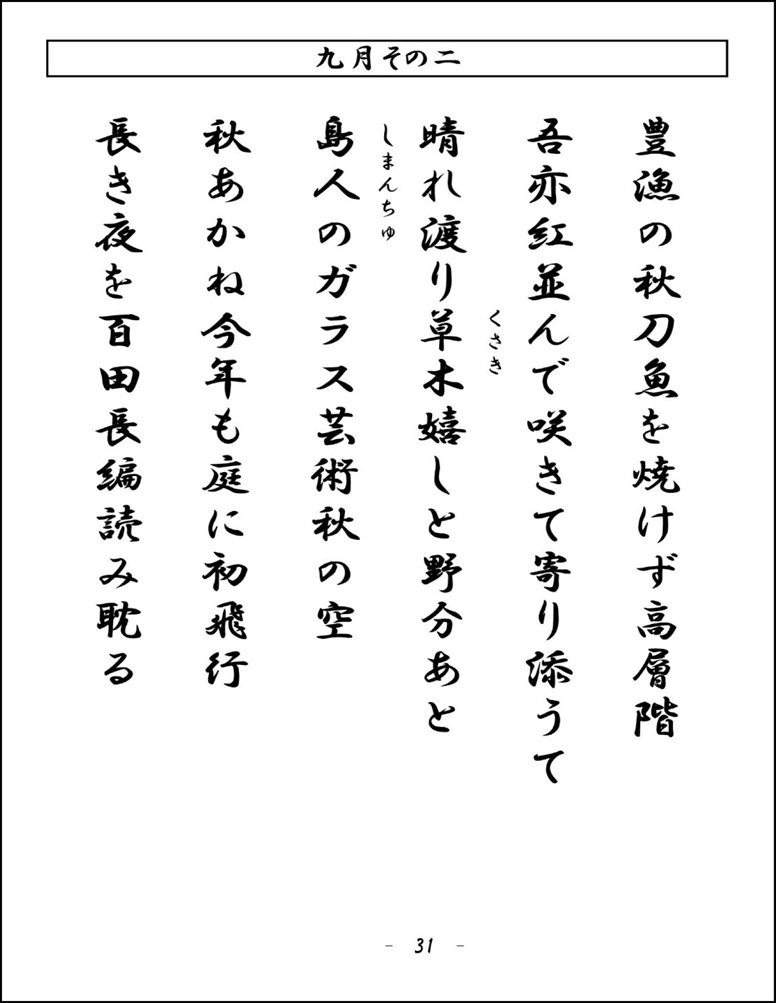 九月その二
豊漁の秋刀魚を焼けず高層階
吾亦紅並んで咲きて寄り添うて
くさき
晴れ渡り草木嬉しと野分あと
しまんちゅ
島人のガラス芸術秋の空
秋あかね今年も庭に初飛行
長き夜を百田長編読み耽る
- 31 -